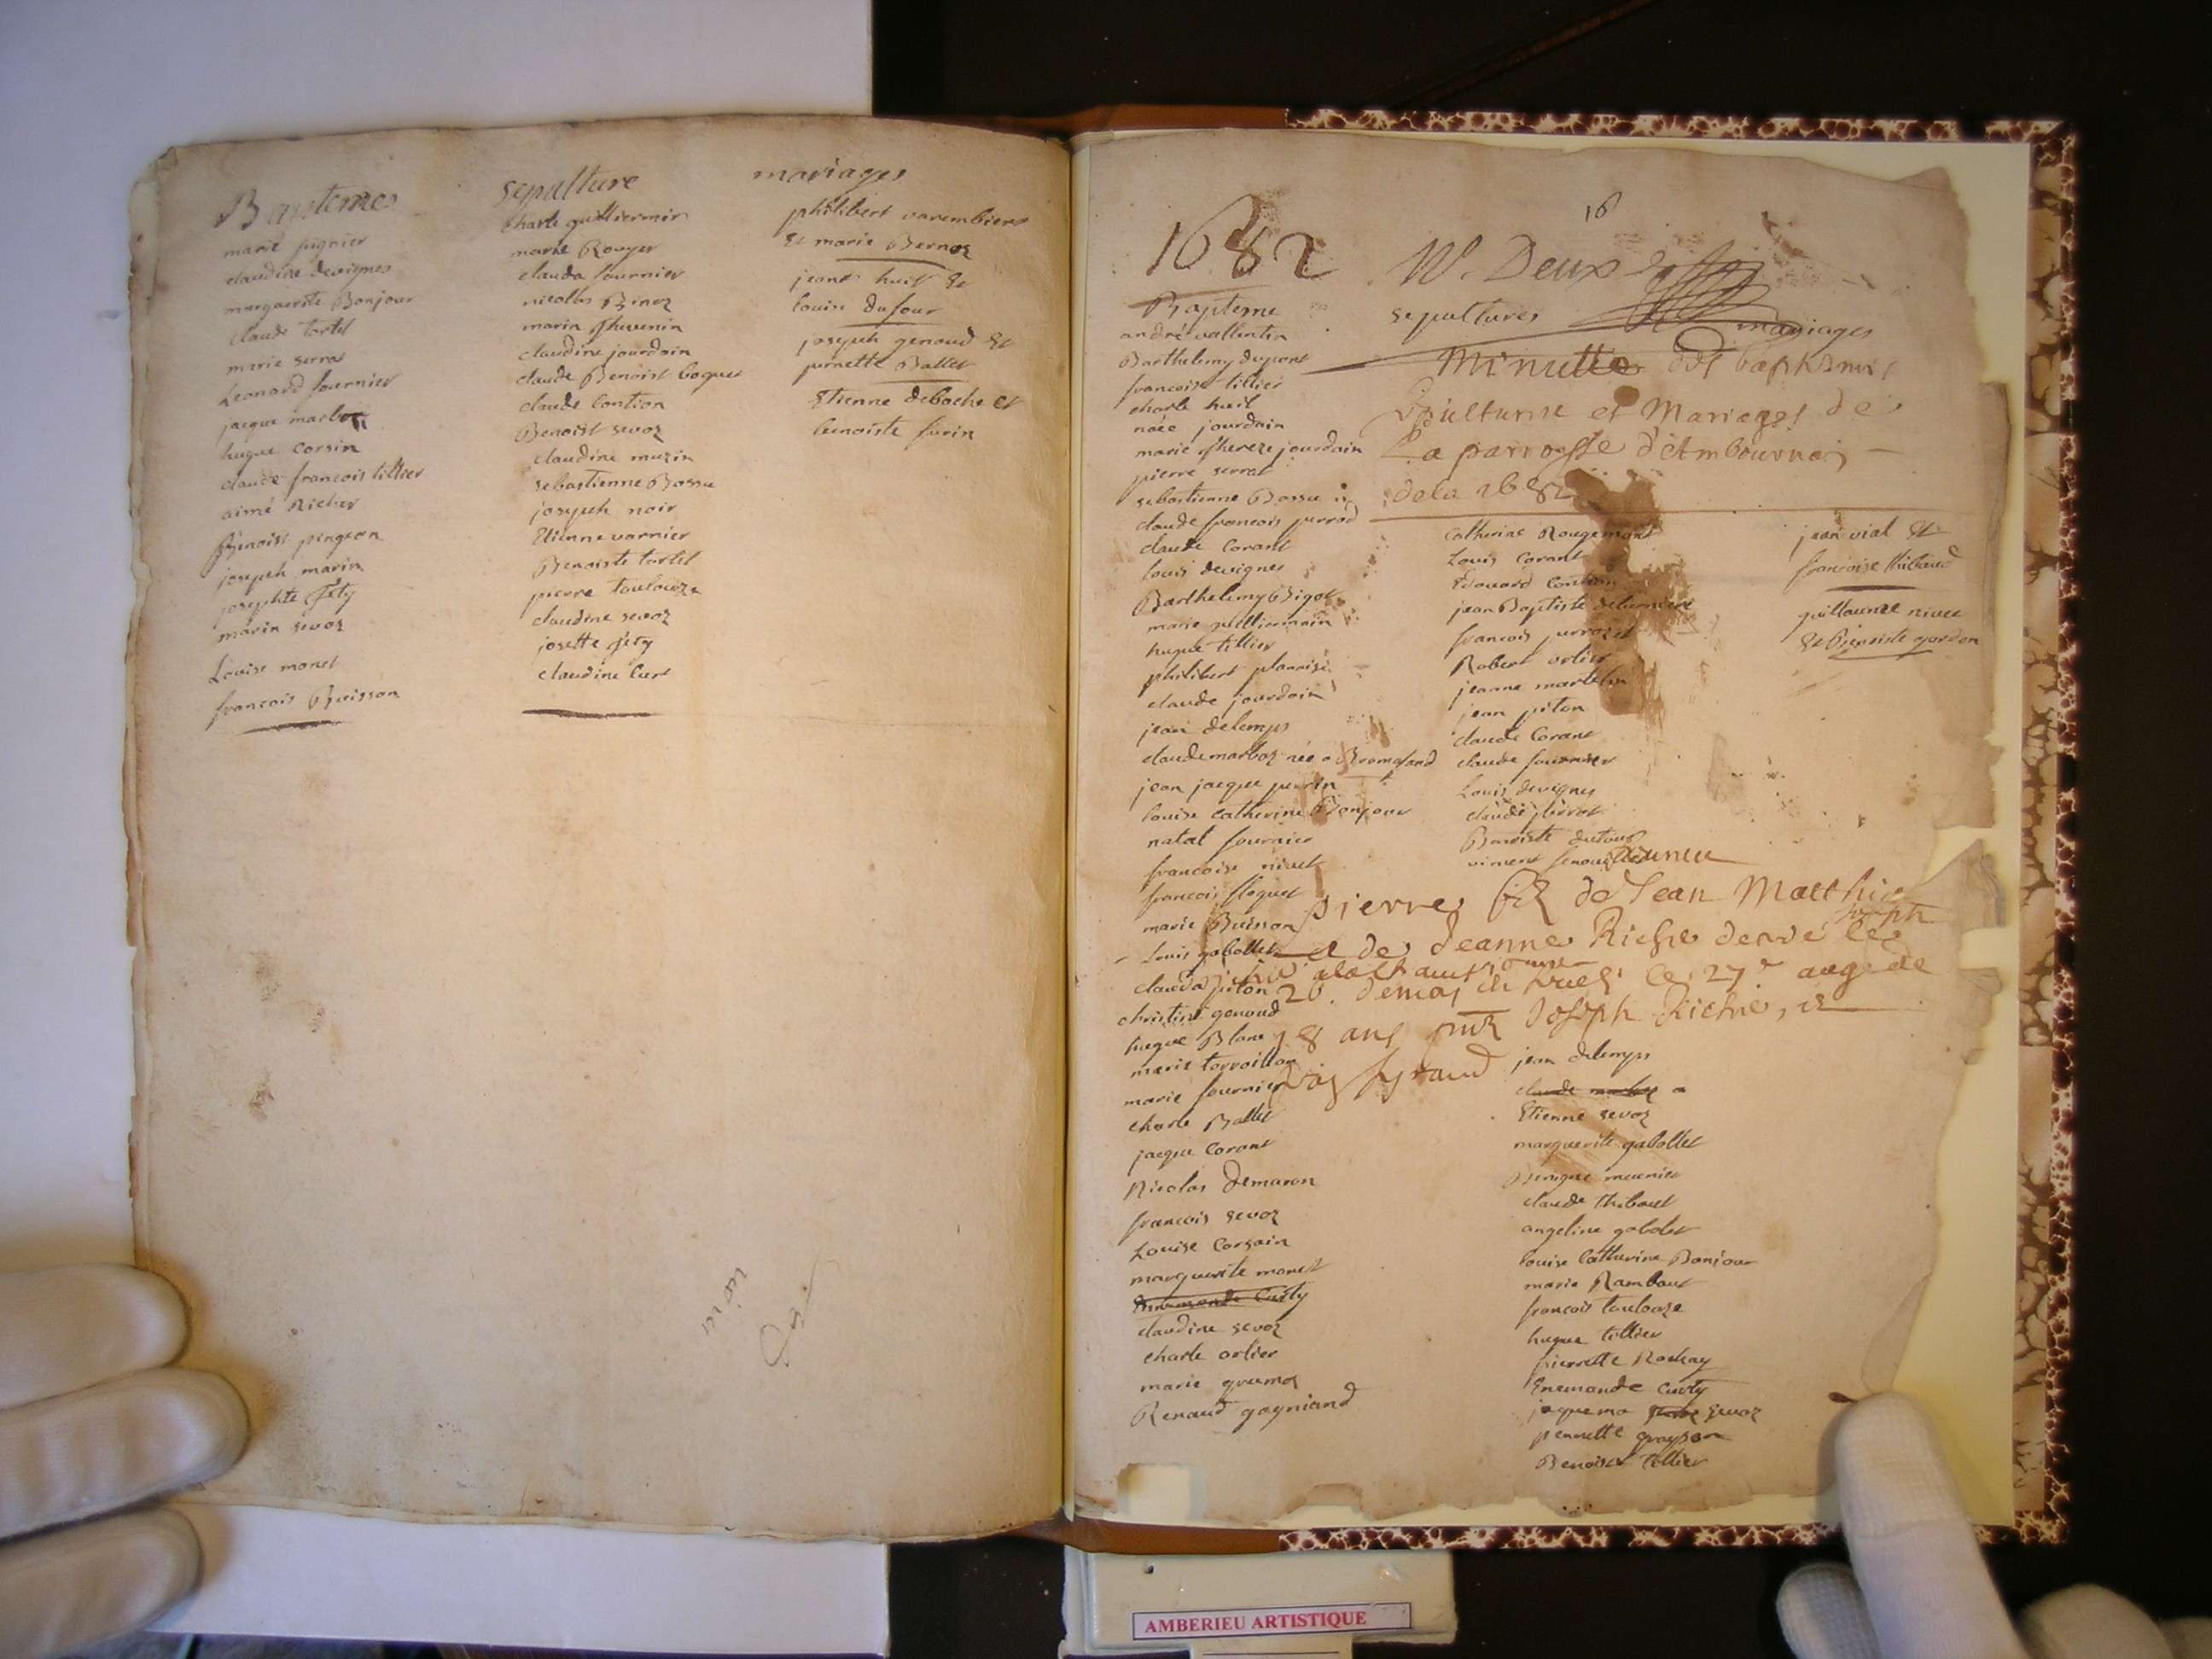 Baptemes
marie pignier
claudine devignes
marguerite Bonjour
claude tortel
marie serrat
Leonard fournier
jacque marboz
hugue Corsin
claude francois tillier
aimé Richer
Benoist pingeon
joseph marin
josephte féty
marin sevoz
Louise monet
francois Buisson
sepulture
Charle guilliermin
marie Rouyer
clauda fournier
nicolas Binoz
marin Thevenin
claudine jourdain
claude Benoist boques
claude Contion
Benoist sevoz
claudine muzin
sebastienne Bossu
joseph noir
Etienne varnier
Benoiste tortel
pierre toulouze
claudine sevoz
josette féty
claudine Curt
mariages
philibert varembiere
Et marie Bernoz
jeant huit Et
louise dufour
joseph genoud Et
pernette Ballet
Etienne deboche et
benoiste furin
16
1682
W. Deux
Bapteme
andré vallentin
Barthelemy dupont
francoise tillier
charle huit
noée jourdain
marie Thereze jourdain
pierre serrat
sebastienne Bossu
claude francois perrod
claude Corant
louis devignes
Barthelemy Bigot
marie guilliermain
hugue tillier
philibert
claude jourdain
jean delemps
claude marboz née a
jean jacque perrin
louise Catherine Bonjour
natal fournier
francoise nivet
francois floquet
marie Buisson
Louis gabollet
clauda piton
christine genoud
hugue Blanc
marie torroillon
marie fournier
charle Ballet
jacque Corant
Nicolas Demaron
francois sevoz
Louise Corsain
marguerite monet
claudine sevoz
charle orlier
marie
Renaud gagniand
sepultures
mariages
Minutte des baptesmes
Sepulturne et Mariages de
La parroisse d'Ambournai
de la 1682
Catherine Rougemont
Louis Corant
Edouard Contion
jean Baptiste delurniere
francois
Robert orlier
jeanne martelin
jean piton
claude Corant
claude fournier
Louis devignes
claude perrot
Benoiste dutour
vincent
jean vial Et
francoise thibaud
guillaume nivet
Et benoiste gordon
pierre filz de Jean Matthieu
joseph
et de Jeanne Riche
20. de may le 27e aagé de
18 ans Joseph Riche,
jean delemps
Etienne sevoz
marguerite gabollet
Benigne meunier
claude thibaut
angeline gabolet
louise Catherine Bonjour
marie Rambaut
francois toulouze
hugue tillier
pierrette Rochay
Enemonde Curty
jaquema sevoz
pernette grayson
Benoist tillier
AMBERIEU ARTISTIQUE